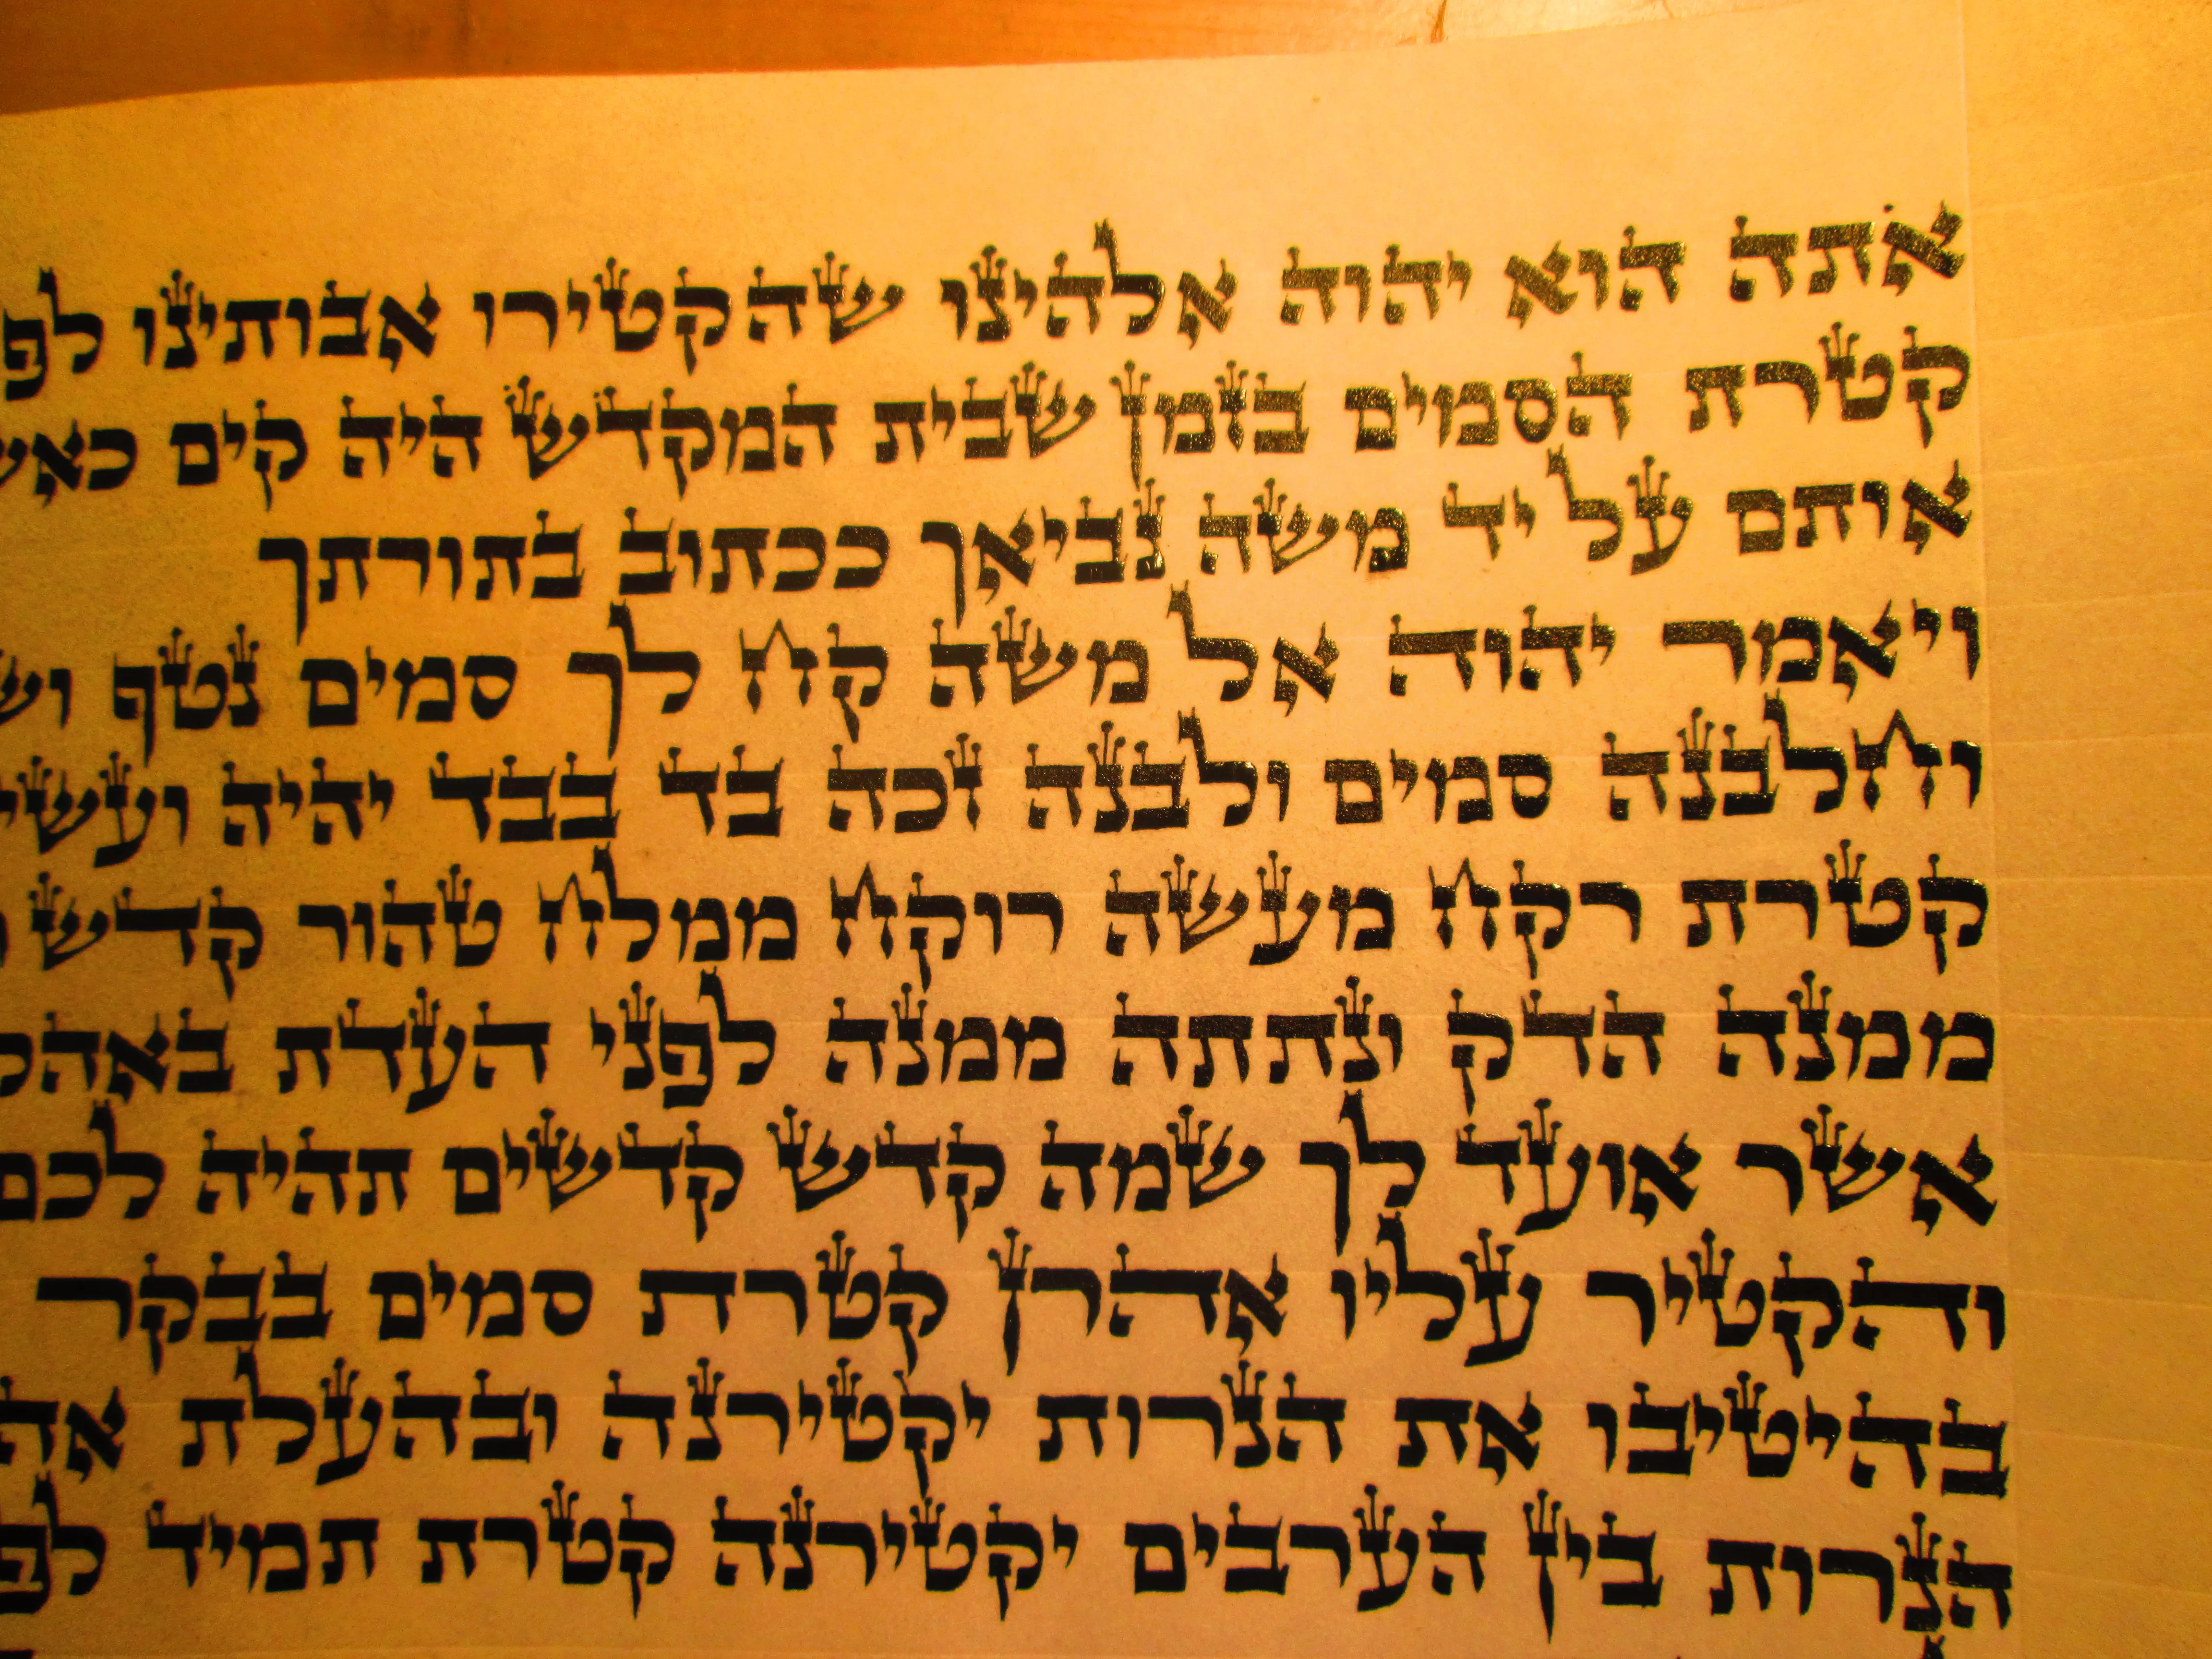 אתה הוא יהוה אלהינו שהקטירו אבותינו
קטרת הסמים בזמן שבית המקדש היה קים
אותם על יד משה נביאך ככתוב בתורתך
ויאמר יהוה אל משה קח לך סמים נטף
וחלבנה סמים ולבנה זכה בד בבד יהיה
קטרת רקח מעשה רוקח ממלח טהור קדש
ממנה הדק ונתתה ממנה לפני העדת
אשר אועד לך שמה קדש קדשים תהיה לכם
והקטיר עליו אהרן קטרת סמים בבקר
בהיטיבו את הנרות יקטירנה ובהעלת
הנרות בין הערבים יקטירנה קטרת תמיד